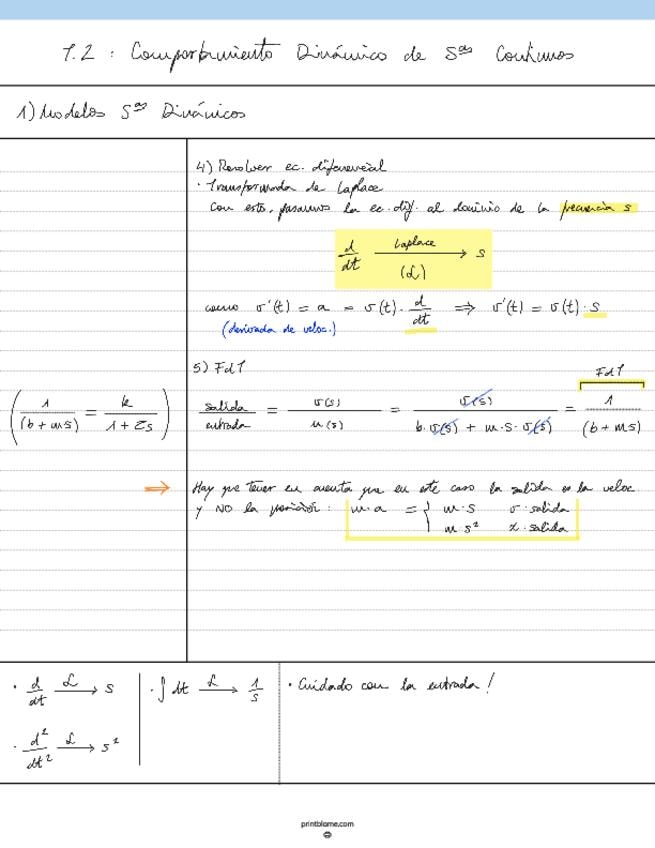 1.2 : Comportamiento Dinámico de Sas Continuos
1) Modelos Sas Dinámicos
4) Resolver ec. diferencial
· Transformada de Laplace
Con esto, pasamos la ec. dif. al dominio de la frecuencia s
d/dt —Laplace (ℒ)→ s
como v'(t) = a = v(t) · d/dt ⟹ v'(t) = v(t) · s
(derivada de veloc.)
5) FdT
FdT
(1/(b + ms) = k/(1 + τs))
salida/entrada = v(s)/u(s) = v(s)/(b · v(s) + m · s · v(s)) = 1/(b + ms)
⇒ Hay que tener en cuenta que en este caso la salida es la veloc.
y NO la posición: m·a = { m·s v·salida
m·s² x·salida
· d/dt —ℒ→ s
· ∫ dt —ℒ→ 1/s
· Cuidado con la entrada!
· d²/dt² —ℒ→ s²
printblame.com